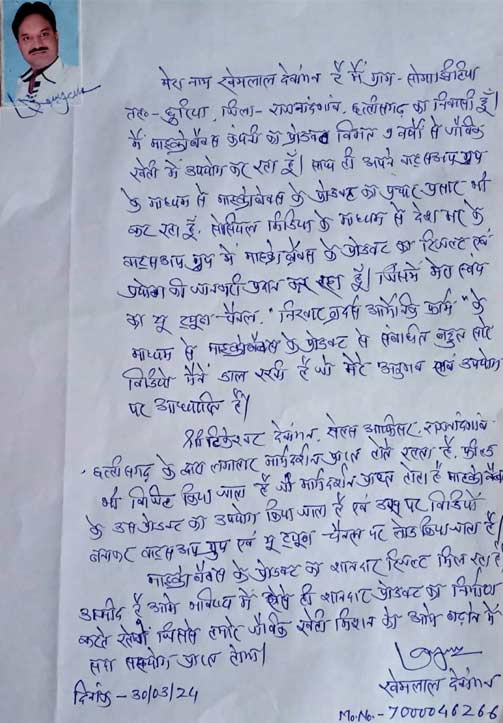 मेरा नाम खेमलाल देवांगन है मैं ग्राम - सोमाझिटिया
तह०- छुरिया, जिला- राजनांदगांव, छत्तीसगढ़ का निवासी हूँ।
मैं माइक्रोबैक्स कंपनी का प्रोडक्ट विगत 7 वर्षों से जैविक
खेती में उपयोग कर रहा हूँ। साथ ही अपने वाट्सअप ग्रुप
के माध्यम से माइक्रोबैक्स के प्रोडक्ट का प्रचार प्रसार भी
कर रहा हूँ. सोसियल मिडिया के माध्यम से देश भर के
वाट्सअप ग्रुप में माइक्रोबैक्स के प्रोडक्ट का रिजल्ट एवं
प्रयोग की जानकारी प्रदान कर रहा हूँ। जिसमें मेरा स्वयं
का यू ट्यूब चैनल. " ब्रदर्स आर्गेनिक फार्म " के
माध्यम से माइक्रोबैक्स के प्रोडक्ट से संबंधित बहुत सारे
विडियो मैंने डाल रखी है जो मेरे अनुभव एवं उपयोग
पर आधारित है।
श्री टिकेश्वर देवांगन. सेल्स आफिसर. राजनांदगांव
छत्तीसगढ़ के द्वारा लगातार मार्गदर्शन प्राप्त होते रहता है. फील्ड
भी विजिट किया जाता है जो मार्गदर्शन प्राप्त होता है माइक्रोबैक्स
के उस प्रोडक्ट का उपयोग किया जाता है एवं उस पर विडियो
बनाकर वाट्सअप ग्रुप एवं यू ट्यूब चैनल पर लोड किया जाता है।
माइक्रोबैक्स के प्रोडक्ट का शानदार रिजल्ट मिल रहा है
उम्मीद है आगे भविष्य में ऐसे ही शानदार प्रोडक्ट का निर्माण
करते रहेंगे जिससे हमारे जैविक खेती मिशन को आगे बढ़ाने में
सदा सहयोग प्राप्त होगा।
खेमलाल देवांगन
दिनांक - 30/03/24
Mo.No.- 7000046266